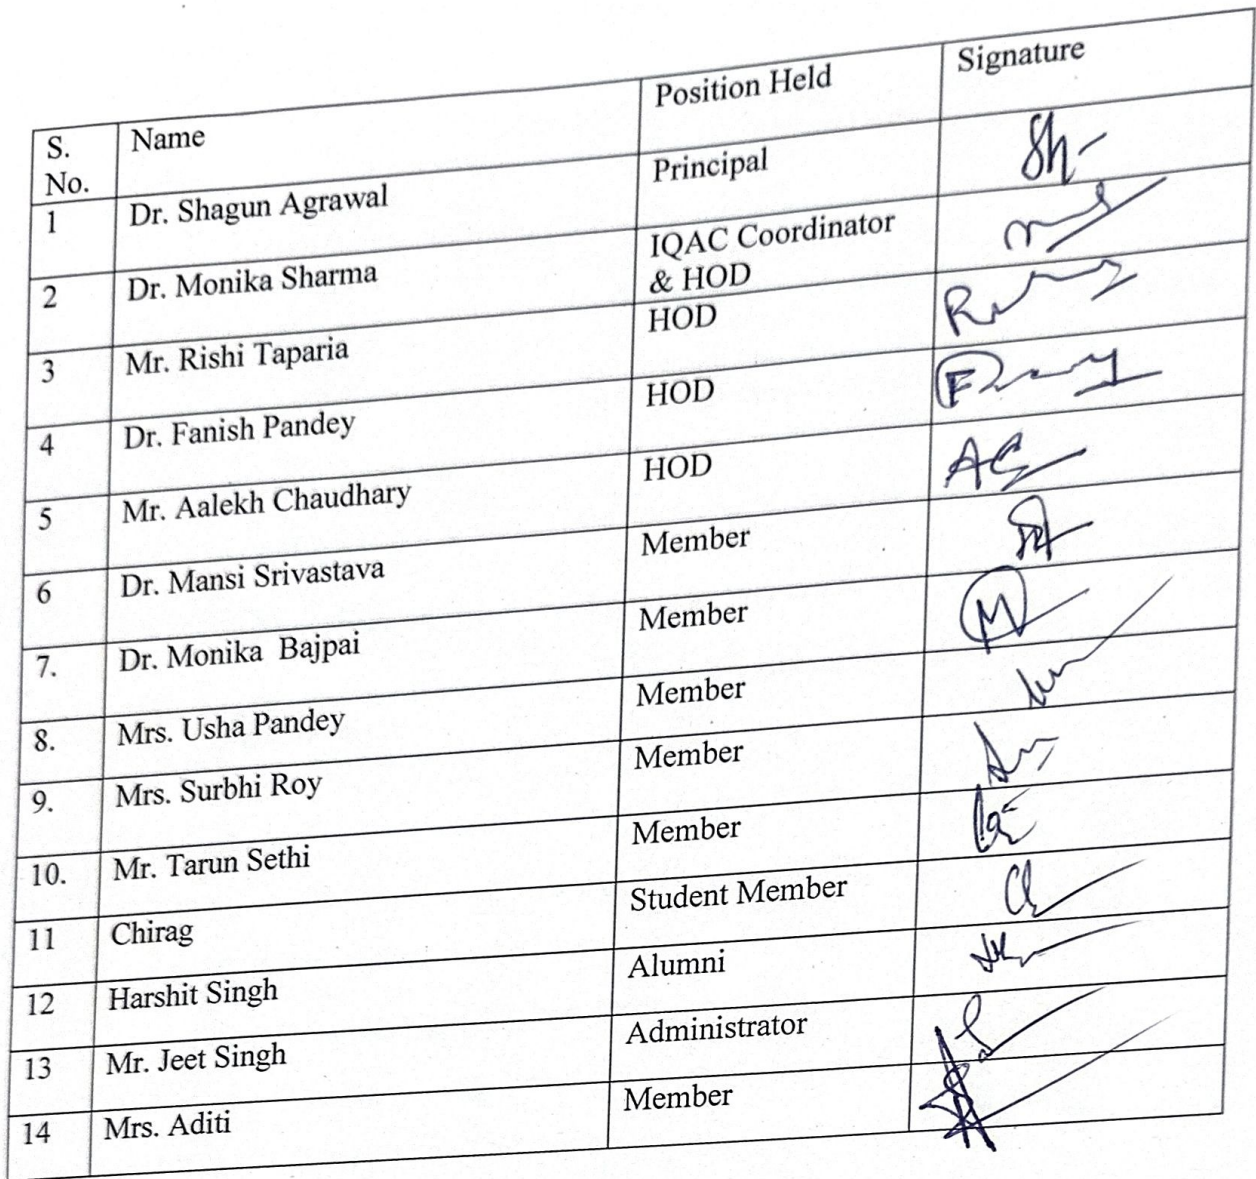 S. No. Name Position Held Signature
1 Dr. Shagun Agrawal Principal
2 Dr. Monika Sharma IQAC Coordinator & HOD
3 Mr. Rishi Taparia HOD
4 Dr. Fanish Pandey HOD
5 Mr. Aalekh Chaudhary HOD AC
6 Dr. Mansi Srivastava Member
7. Dr. Monika Bajpai Member M
8. Mrs. Usha Pandey Member
9. Mrs. Surbhi Roy Member
10. Mr. Tarun Sethi Member
11 Chirag Student Member
12 Harshit Singh Alumni
13 Mr. Jeet Singh Administrator
14 Mrs. Aditi Member